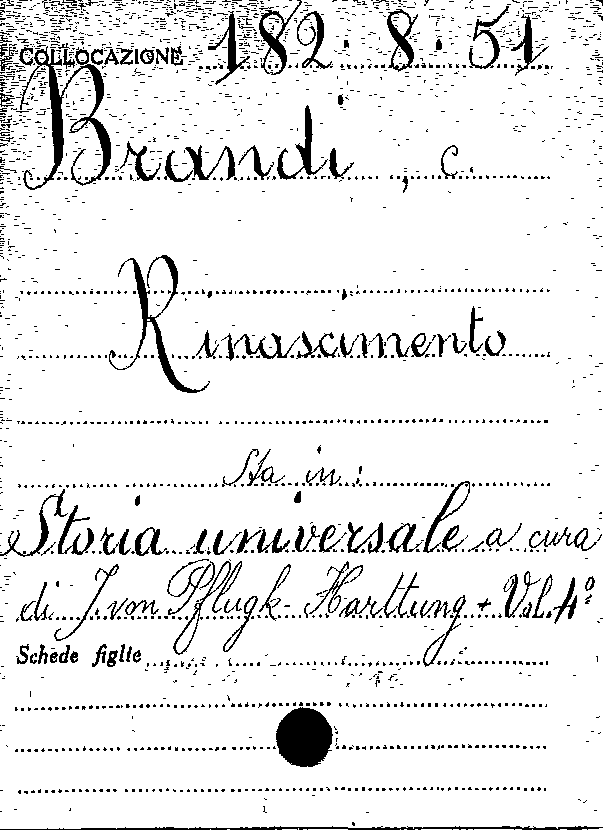 COLLOCAZIONE 182.8.51
Brandi, C.
Rinascimento
Sta in:
Storia universale a cura
di J. von Pflugk-Harttung + Vol. 4º
Schede figlie